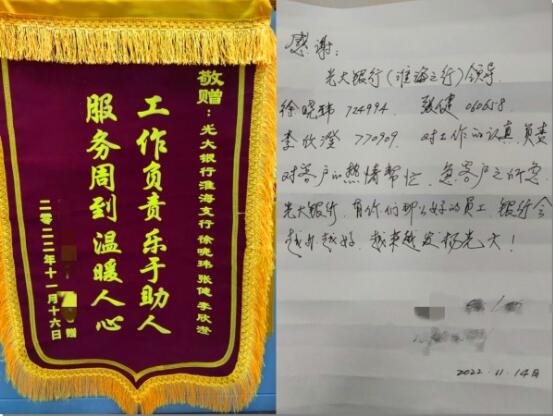 敬赠：光大银行淮海支行 徐晓玮 张健 李欣澄
工作负责 乐于助人
服务周到 温暖人心
赠
二零二二年十一月十六日
感谢：
光大银行(淮海支行)领导.
徐晓玮 724994. 张健 060658.
李欣澄 770909. 对工作的认真负责
对客户的热情帮忙、急客户之所急.
光大银行,有你们那么好的员工,银行会
越办越好,越来越发扬光大!
2022.11.14日